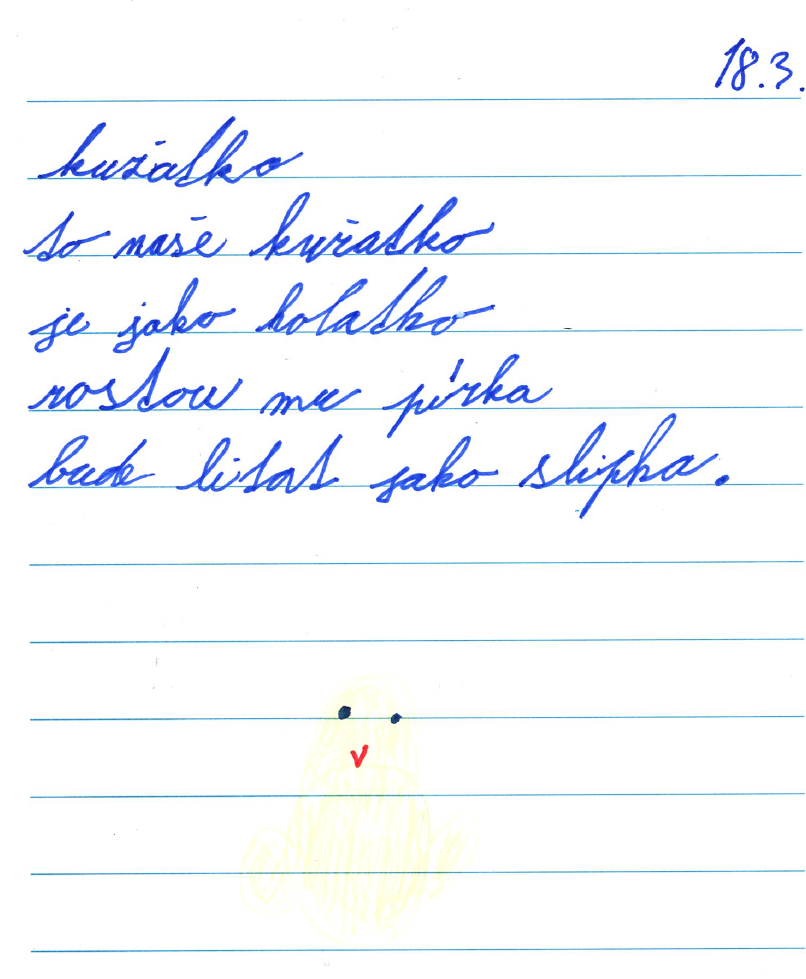 18.3.
kuřátko
to naše kuřátko
je jako holátko
rostou mu pírka
bude lítat jako slípka.